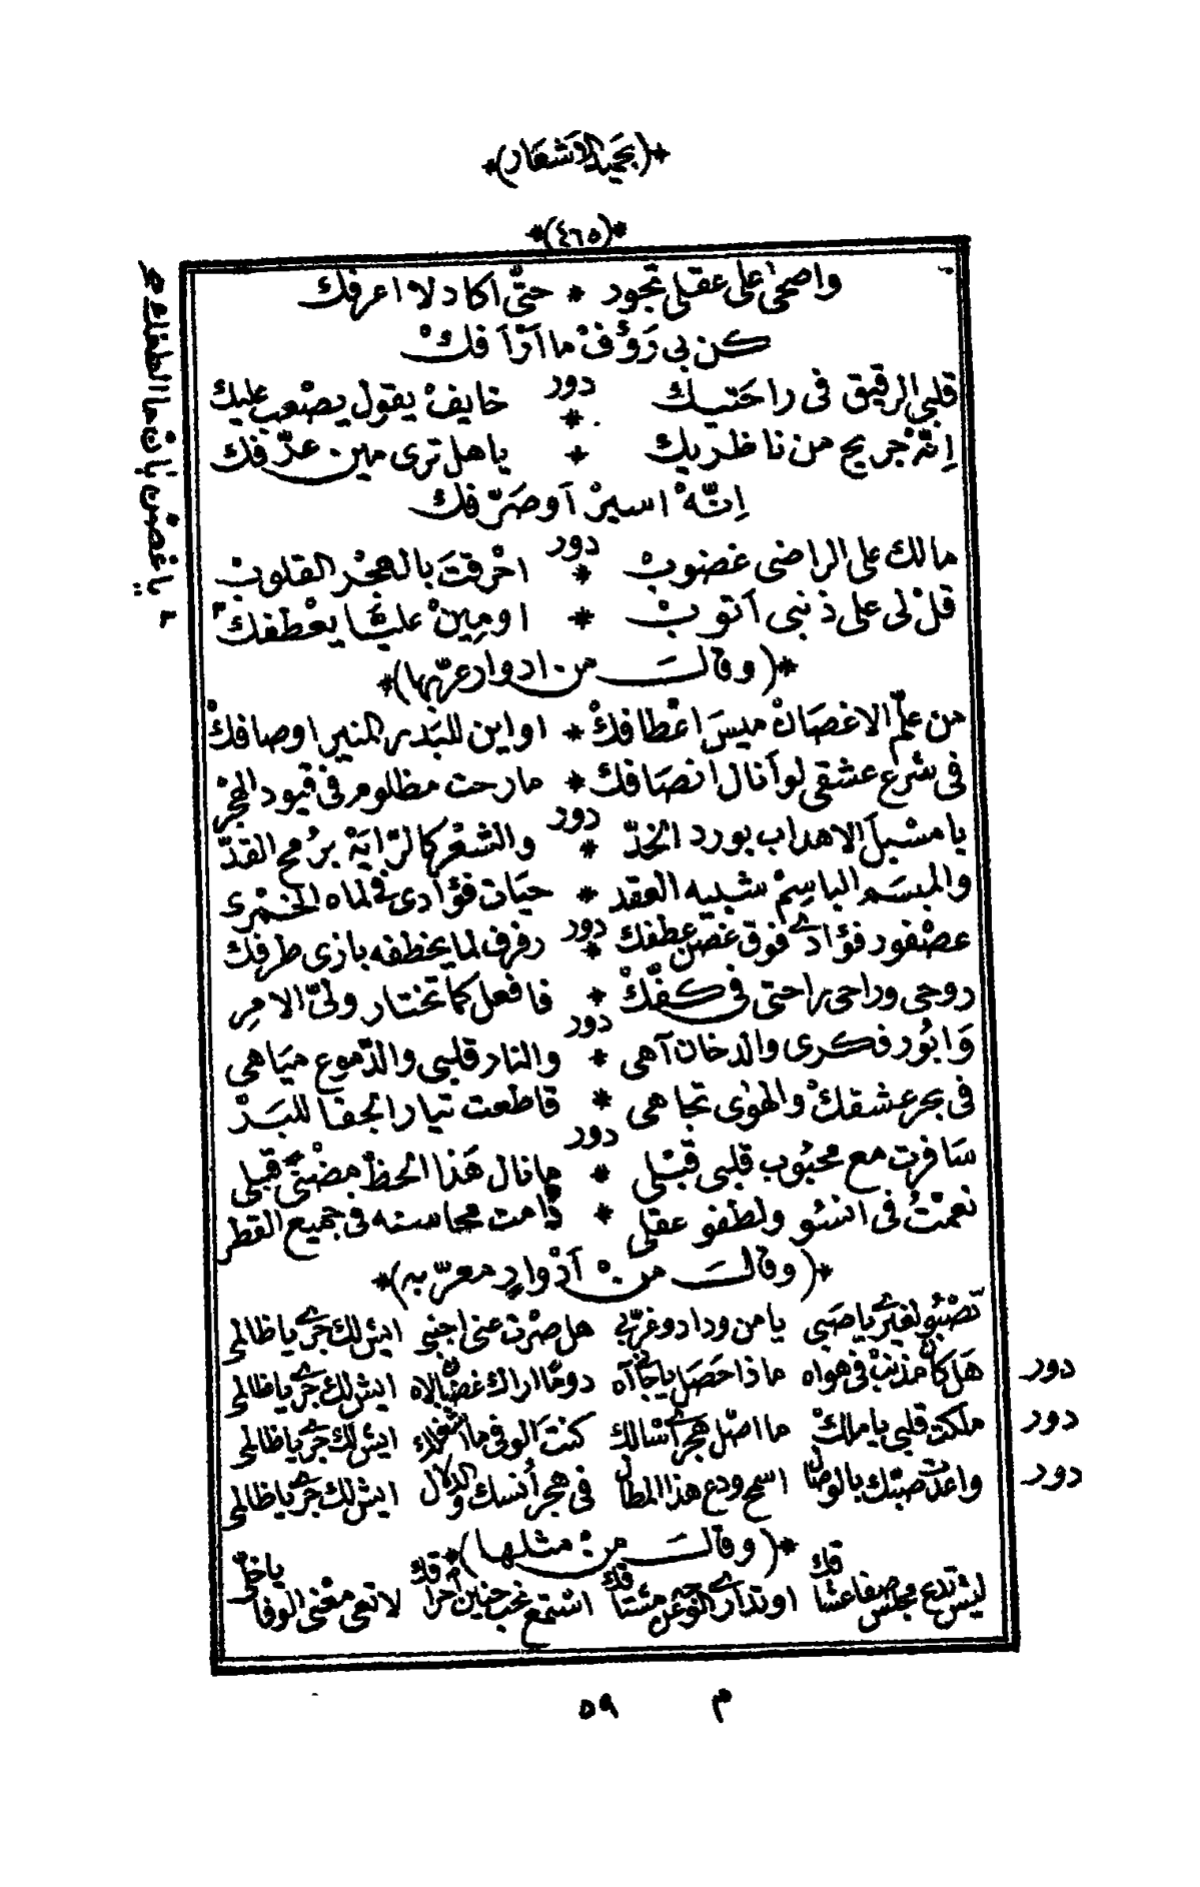 *(بحميد الاشعار)*
*(٤٦٥)*
واضحى على عقلى تجود * حتّى اكاد لا اعرفك
كن بى رَؤُفْ ما اَرْاَفكْ
دور
قلبى الرقيق فى راحَتيكْ * خايفْ يقول يصْعب عليكْ
اِنّهْ جريح من ناظريك * ياهل ترى مين عرّفك
اِنّهْ اسيرْ اَوصَرّفك
دور
مالك على الراضى غضوبْ * احْرقتَ بالهجْر القلوبْ
قلْ لى على ذنبى اَتوبْ * اومِينْ علينا يعْطفكْ ٣
٣ ياغصْن بانْ ما الطفك
*(وقالت من ادوار عربها)*
من علّم الاغصَانْ ميسَ اعْطافكْ * اواين للبَدر المنير اوصافكْ
فى شرع عشقى لو اَنال انصَافك * مارحت مظلوم فى قيود الهجْر
دور
يا مسْبلَ الاهداب بورد الخدّ * والشعْر كالرّايَهْ برُمح القدّ
والمبسَم الباسِمْ شبيه العقد * حيَات فؤادى فى لماه الخمْرى
دور
عصْفور فؤادى فوق غصْن عطفك * رفرف لما يخطفه بازى طرفك
روحى وراحى راحتى فى كفّكْ * فافعل كما تختار ولىّ الامرِ
دور
وَابُور فكرى والدخان آهى * والنار قلبى والدّموع ميَاهى
فى بحر عشقكْ والهوٰى تجاهى * قاطعت تيار الجفا للبَدْ
دور
سَافرت مع محبُوب قلبى قبْلى * مانال هَذا الحظّ مضْنًى قبلى
نعمْتُ فى انسُو ولطفو عقلى * دَامت محاسنه فى جميع القطر
*(وقالت من اَدْوارٍ معرّبه)*
تصْبُو لغيرى ياصَبى يا من ودادو غرّبى هل صرْت عنى اجنبى ايش لك جرى ياظالمى
دور هَل كان مذنبْ فى هواه ماذا حَصَل ياجانى آه دومًا اراك غضبان لاه ايش لك جرى ياظالمى
دور ملكت قلبى يا ملكْ ما اصْل هجرى اَسْالك كنتَ الوفى ما اشغلك ايش لك جرى ياظالمى
دور واعدْت صبّتك بالوصال اسمح ودع هذا المطال فى هجر اُنسك والدلال ايش لك جرى ياظالمى
*(وقالت من مثلها)*
ليش تدع مجلس صفا عشاقك او تدارى الوجه عن مشتاقك استمع نحب حنين احراقك لا تعى معْنى الوفا ياخلّى
م ٥٩